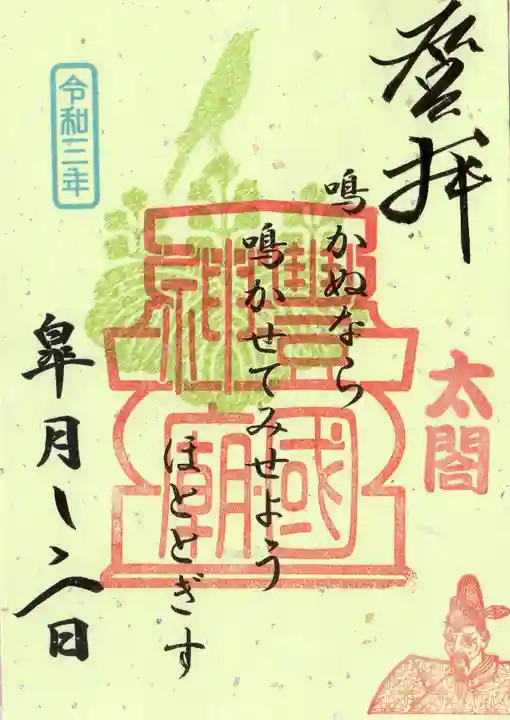 登拝
太閤
鳴かぬなら
鳴かせてみせよう
ほととぎす
豐國
神廟
令和三年
皐月 日